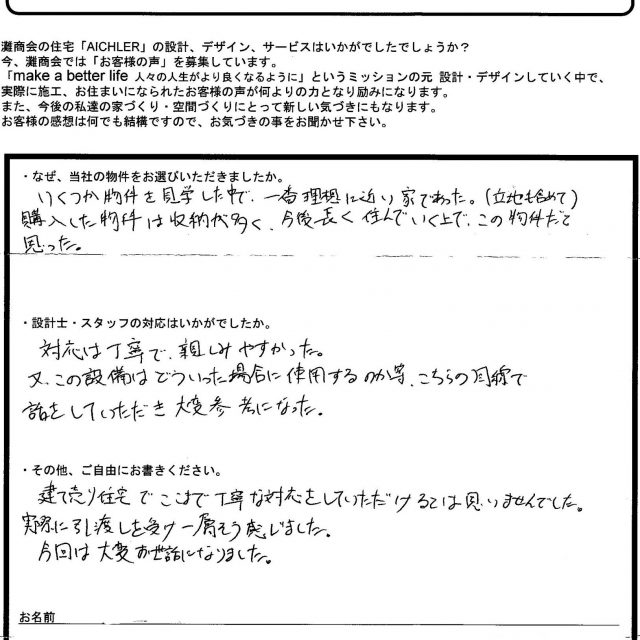 灘商会の住宅「AICHLER」の設計、デザイン、サービスはいかがでしたでしょうか？
今、灘商会では「お客様の声」を募集しています。
「make a better life 人々の人生がより良くなるように」というミッションの元 設計・デザインしていく中で、
実際に施工、お住まいになられたお客様の声が何よりの力となり励みになります。
また、今後の私達の家づくり・空間づくりにとって新しい気づきにもなります。
お客様の感想は何でも結構ですので、お気づきの事をお聞かせ下さい。
・なぜ、当社の物件をお選びいただきましたか。
いくつか物件を見学した中で、一番理想に近い家であった。（立地も含めて）
購入した物件は収納が多く、今後長く住んでいく上で、この物件だと
思った。
・設計士・スタッフの対応はいかがでしたか。
対応は丁寧で、親しみやすかった。
又、この設備はどういった場合に使用するのか等、こちらの目線で
話をしていただき大変参考になった。
・その他、ご自由にお書きください。
建て売り住宅でここまで丁寧な対応をしていただけるとは思いませんでした。
実際に引渡しを受け一層そう感じました。
今回は大変お世話になりました。
お名前